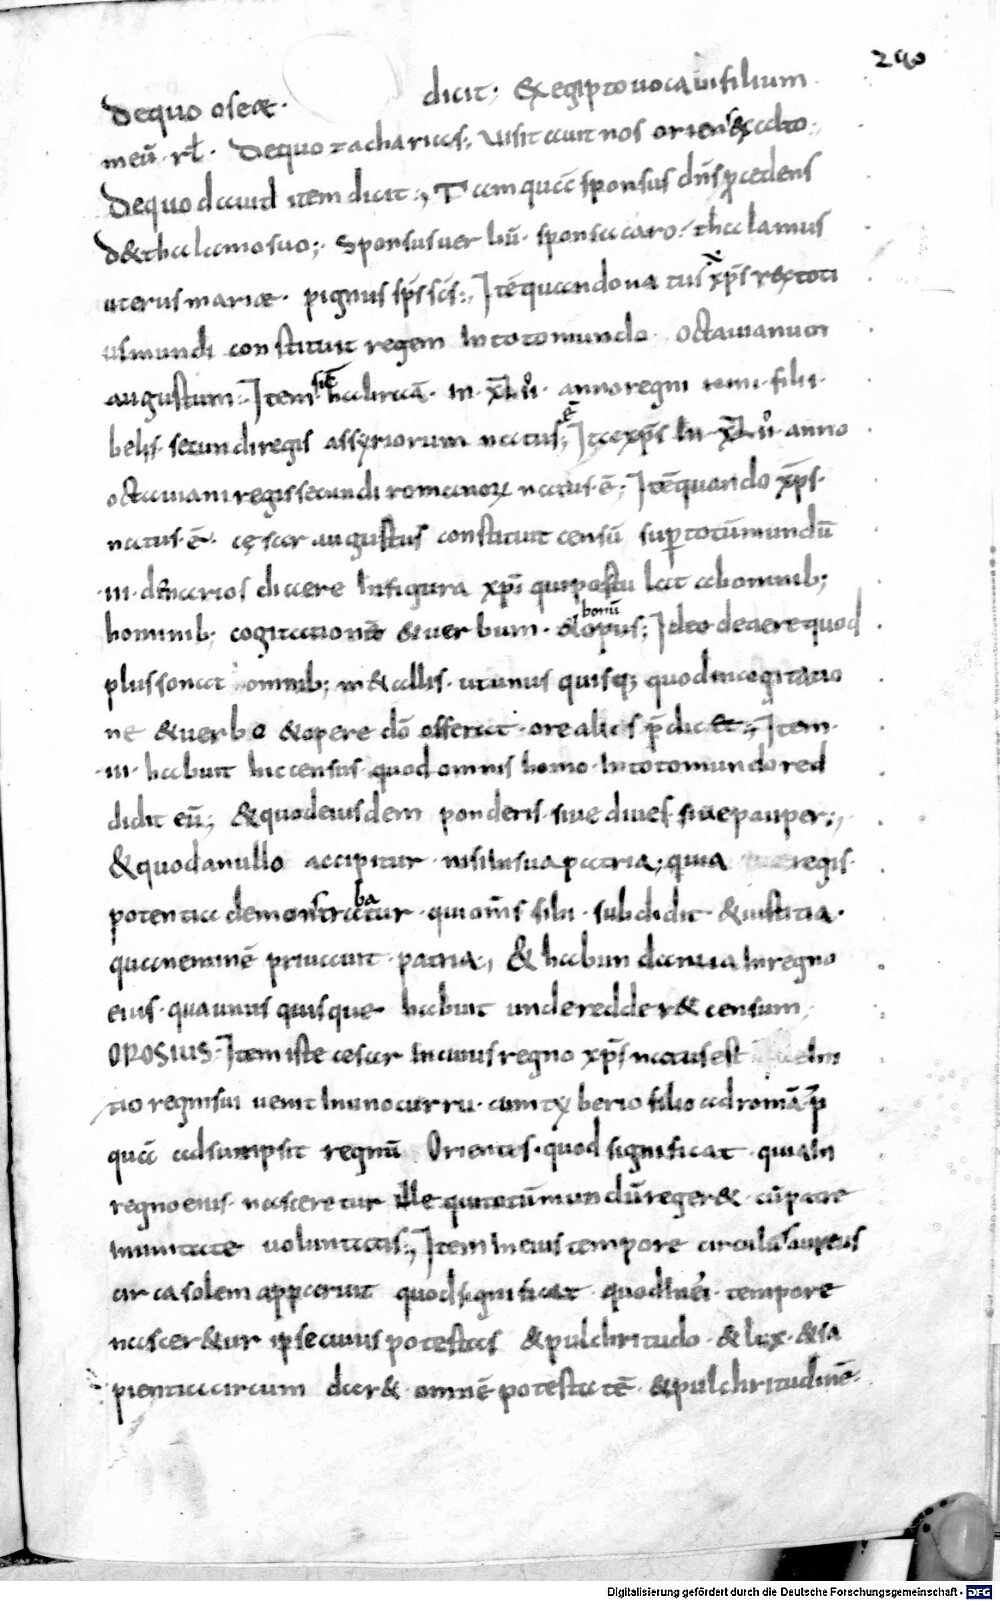 290
De quo oseæ. dicit; Ex egipto uocaui filium
meū. rł. De quo zacharias; Uisitauit nos oriens ex alto;
De quo dauid item dicit; Tamquā sponsus dn̄s p̄cedens
de thalamo suo; Sponsus uerbū. sponsa caro. thalamus
uterus mariæ. pignus sp̄s sc̄s; Itē quando natus xp̄s rex toti
us mundi constituit regem In toto mundo. Octauianum
augustum; Item sic habraā. in. xl.ii. anno regni nini. filii.
belis. secundi regis assyriorum natus ē; Ita xp̄s In xl.ii. anno
octauiani regis secundi romanorum natus. ē; Itē quando xp̄s.
natus. ē. cęsar augustus constituit censū super totū mundū
.iii. denarios dicere In figura xp̄i qui postulat ab omnib;
hominib; cogitationē & uerbum. & bonū opus; Ideo decere quod
plus sonat omnib; in & allis. ut unus quisq; quod in cogitatio
ne & uerbo & opere dō offerat. ore aliis p̄dicet; Item.
.iii. habuit hic census. quod omnis homo. In toto mundo red
didit eū; & quod eiusdem ponderis. siue diues. siue pauper;
& quod a nullo accipitur nisi In sua patria; quia regis.
potentia demonstrabatur. qui om̄s sibi. subdidit. & iustitia.
qua neminē priuauit. patria; & habundantia In regno
eius. qua unus quisque habuit unde redder& censum.
OROSIUS. Item iste cesar In cuius regno xp̄s natus est
tio regni sui uenit In uno curru. cum tyberio filio ad romā p̄
quā adsumpsit regnū Orientis. quod significat quia In
regno eius. nasceretur ille qui totū mundū reger& cū patre
In unitate uoluntatis; Item In eius tempore circulus aureus
circa solem apparuit quod significat quod In ei. tempore
nascer&ur ipse cuius potestas & pulchritudo. & lux. & sa
pientia circumdar& omnē potestatē & pulchritudinē.
Digitalisierung gefördert durch die Deutsche Forschungsgemeinschaft - DFG